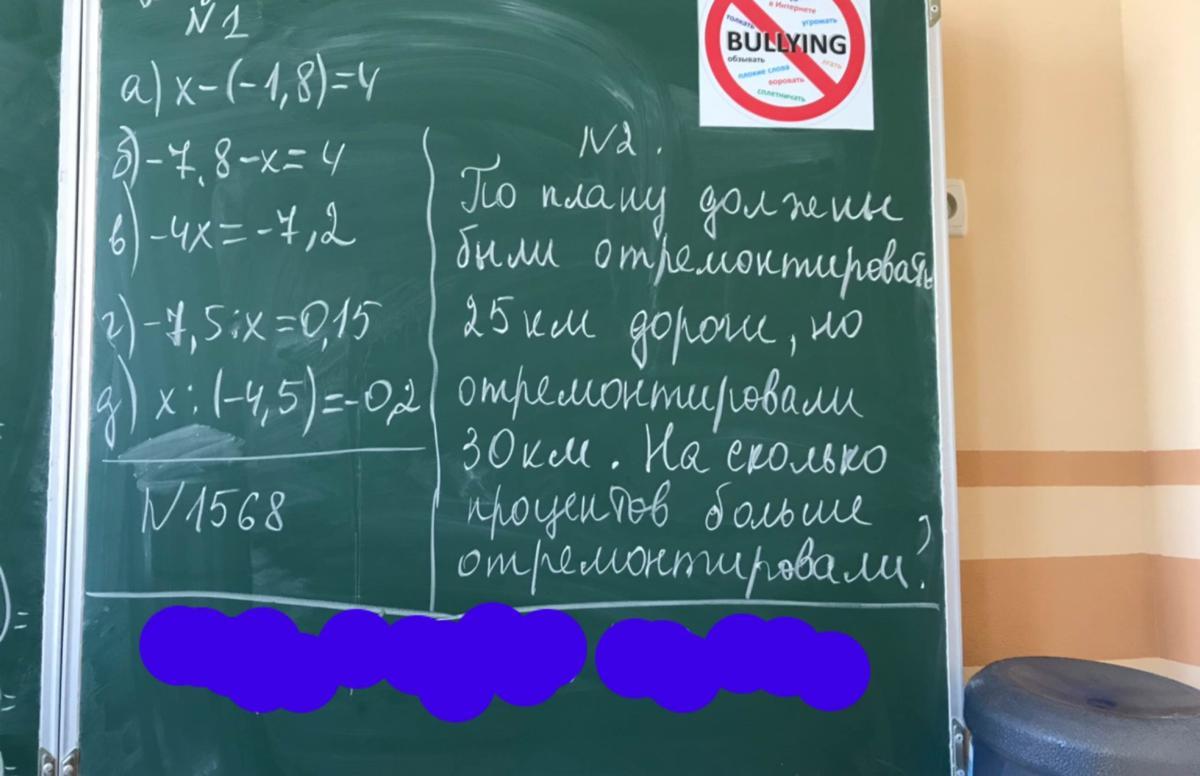 №1
а) x-(-1,8)=4
б) -7,8-x=4
в) -4x=-7,2
г) -7,5:x=0,15
д) x:(-4,5)=-0,2
№1568
в Интернете
толкать
угрожать
BULLYING
обзывать
лгать
плохие слова
воровать
сплетничать
№2.
По плану должны
были отремонтировать
25 км дорог, но
отремонтировали
30 км. На сколько
процентов больше
отремонтировали?
)=